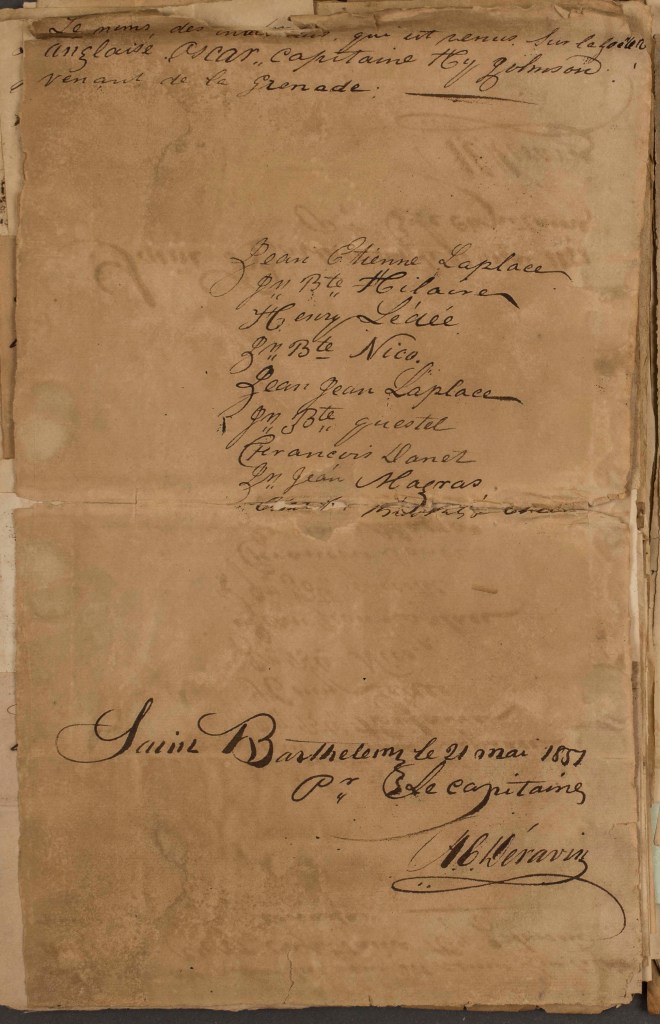 Le noms, des qui est venus. Sur la
anglaise "Oscar" Capitaine Hy Johnson.
venant de la Grenade.
Jean Etienne Laplace
Jn Bte Hilaire
Henry Lédée
Jn Bte Nico.
Jean Jean Laplace
Jn Bte questel
Francois Danet
Jn Jean Magras.
Saint Barthelemy le 21 mai 1857
Pr Le capitaine
Déravin